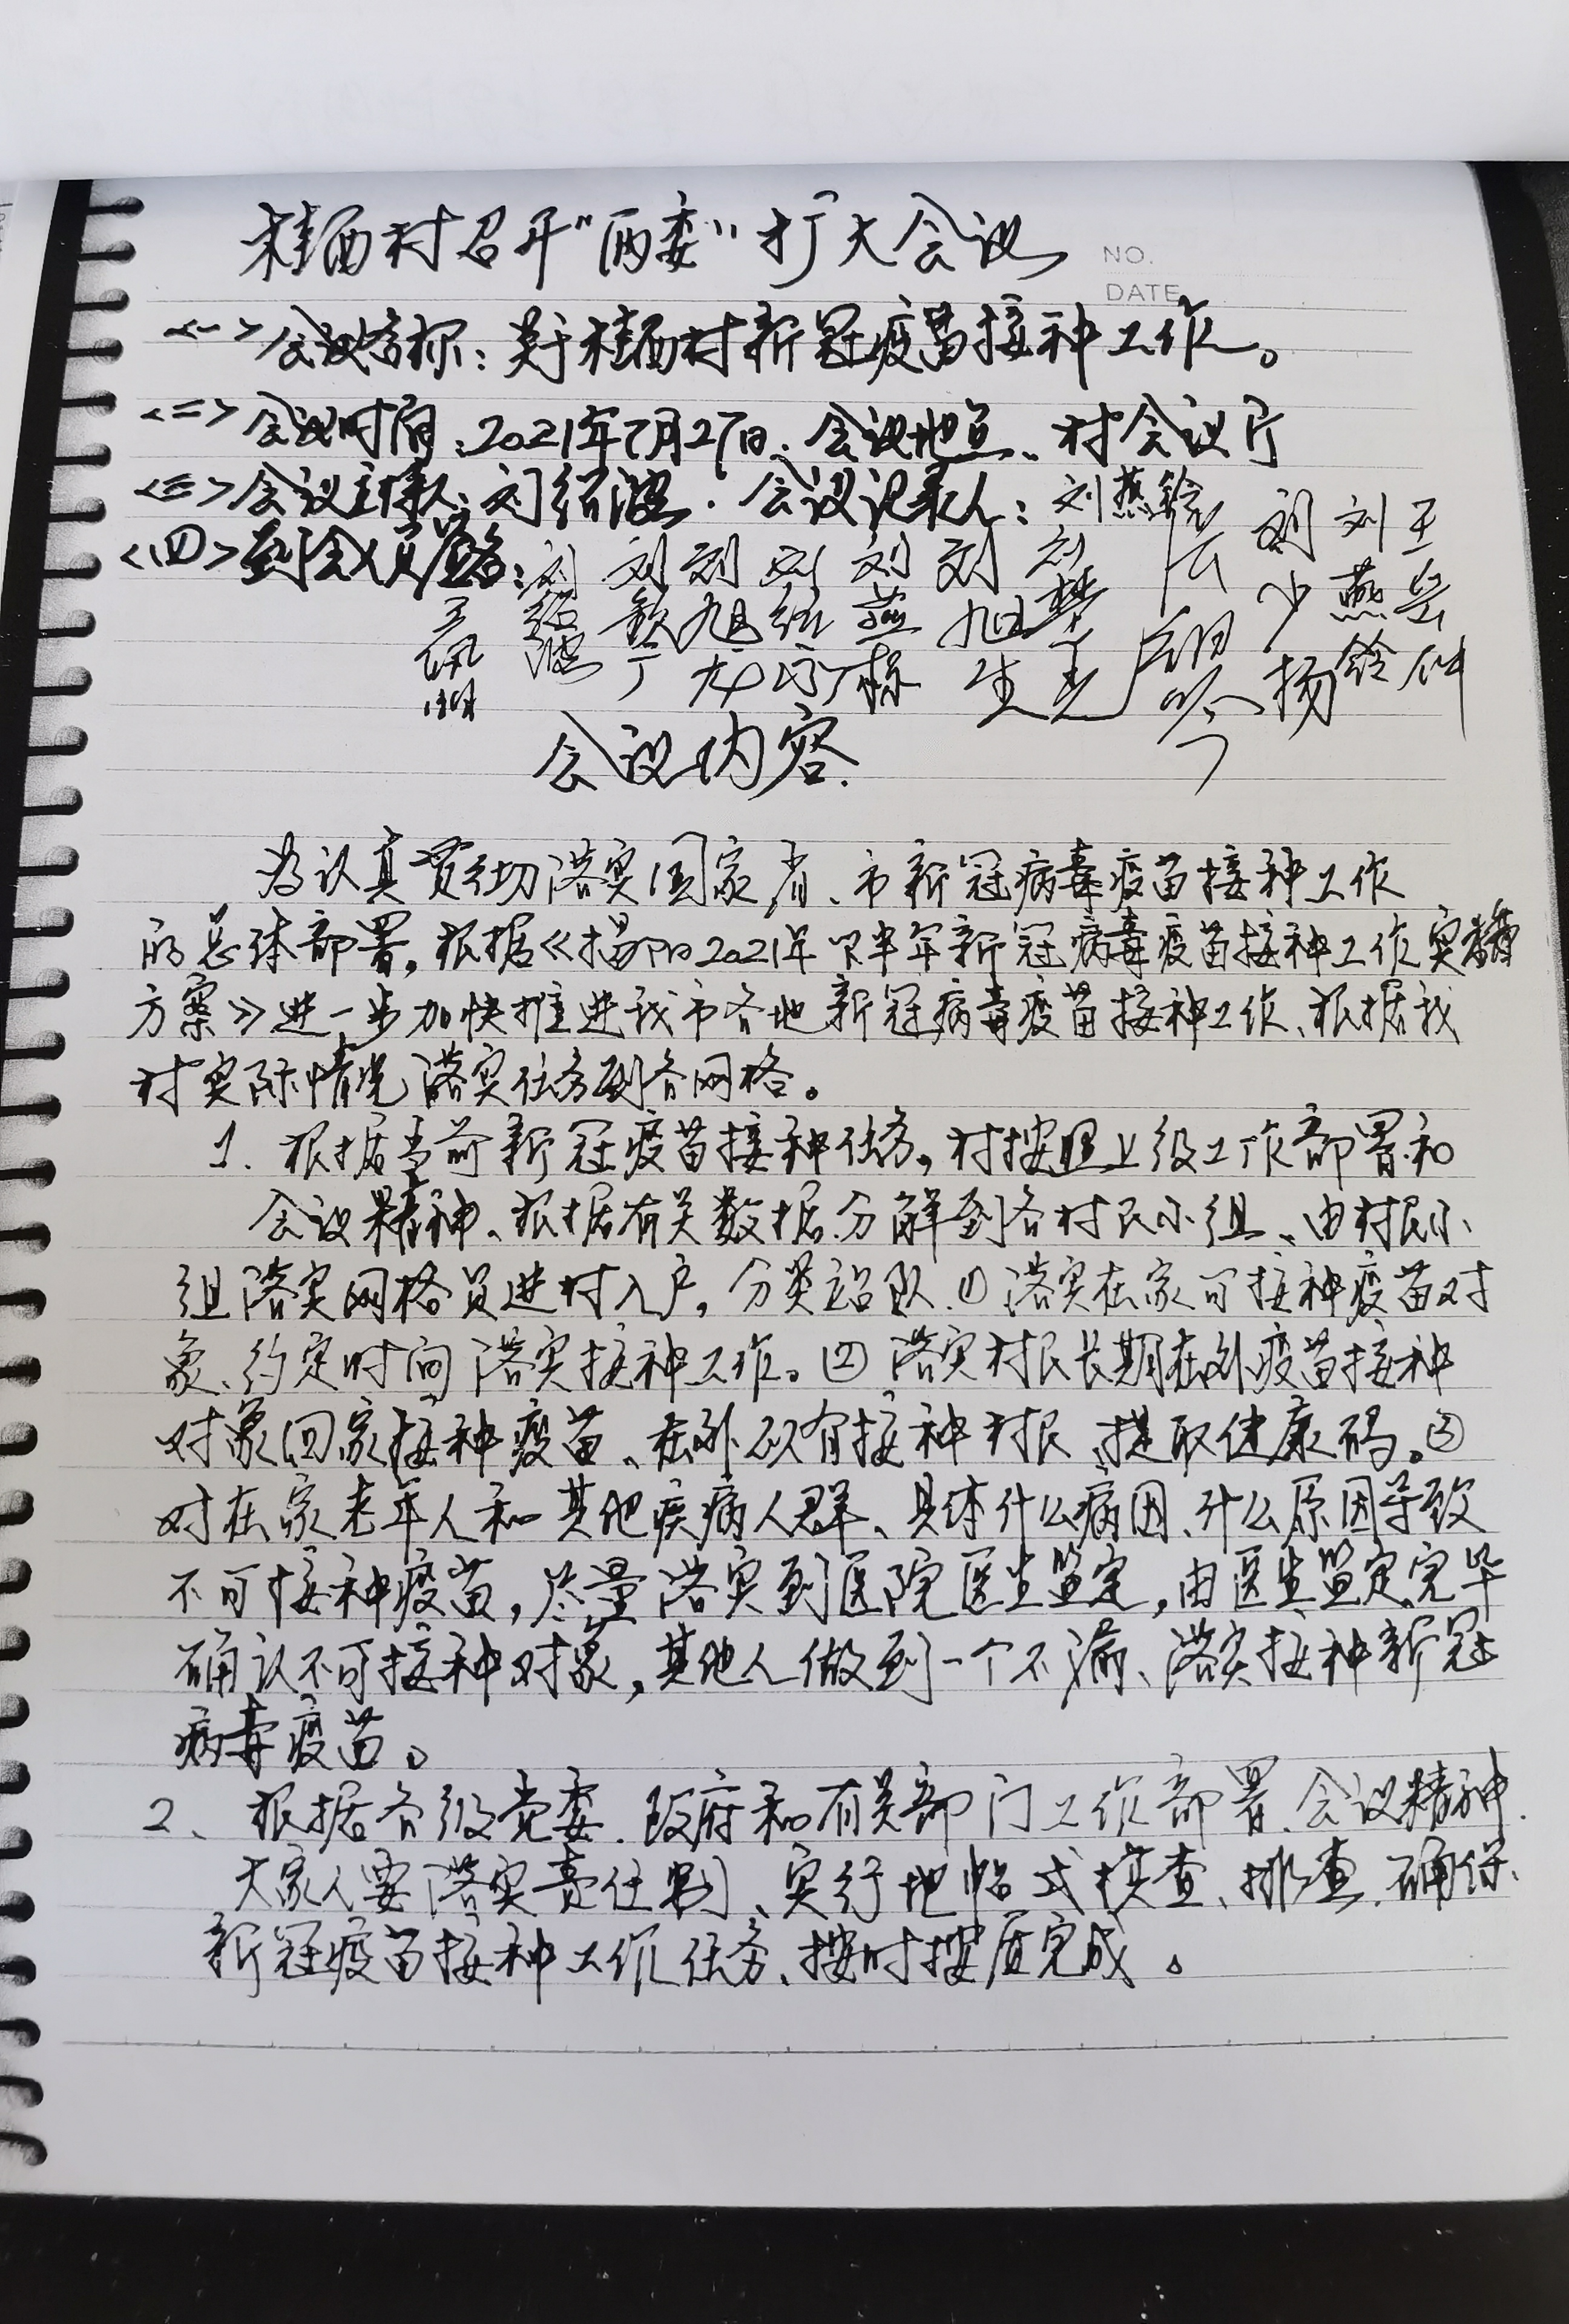 桂西村召开"两委"扩大会议
NO.
DATE
<一>会议名称：关于桂西村新冠疫苗接种工作。
<二>会议时间：2021年7月27日、会议地点、村会议厅
<三>会议主持人：刘绍波.会议记录人：刘燕铃
<四>到会人员签名：
会议内容.
为认真贯彻落实国家、省、市新冠病毒疫苗接种工作
的总体部署，根据《揭阳2021年下半年新冠病毒疫苗接种工作实施
方案》进一步加快推进我市各地新冠病毒疫苗接种工作、根据我
村实际情况落实任务到各网格。
1.根据当前新冠疫苗接种任务，村按照上级工作部署和
会议精神、根据有关数据分解到各村民小组、由村民小
组落实网格员进村入户，分类站队.①落实在家可接种疫苗对
象、约定时间落实接种工作。②落实村民长期在外疫苗接种
对象回家接种疫苗、在外以有接种村民、提取健康码。③
对在家老年人和其他疾病人群、具体什么病因、什么原因导致
不可接种疫苗，尽量落实到医院医生监定，由医生监定完毕
确认不可接种对象，其他人做到一个不漏、落实接种新冠
病毒疫苗。
2、根据各级党委.政府和有关部门工作部署.会议精神.
大家人要落实责任制、实行地毯式摸查、排查.确保、
新冠疫苗接种工作任务、按时按质完成。